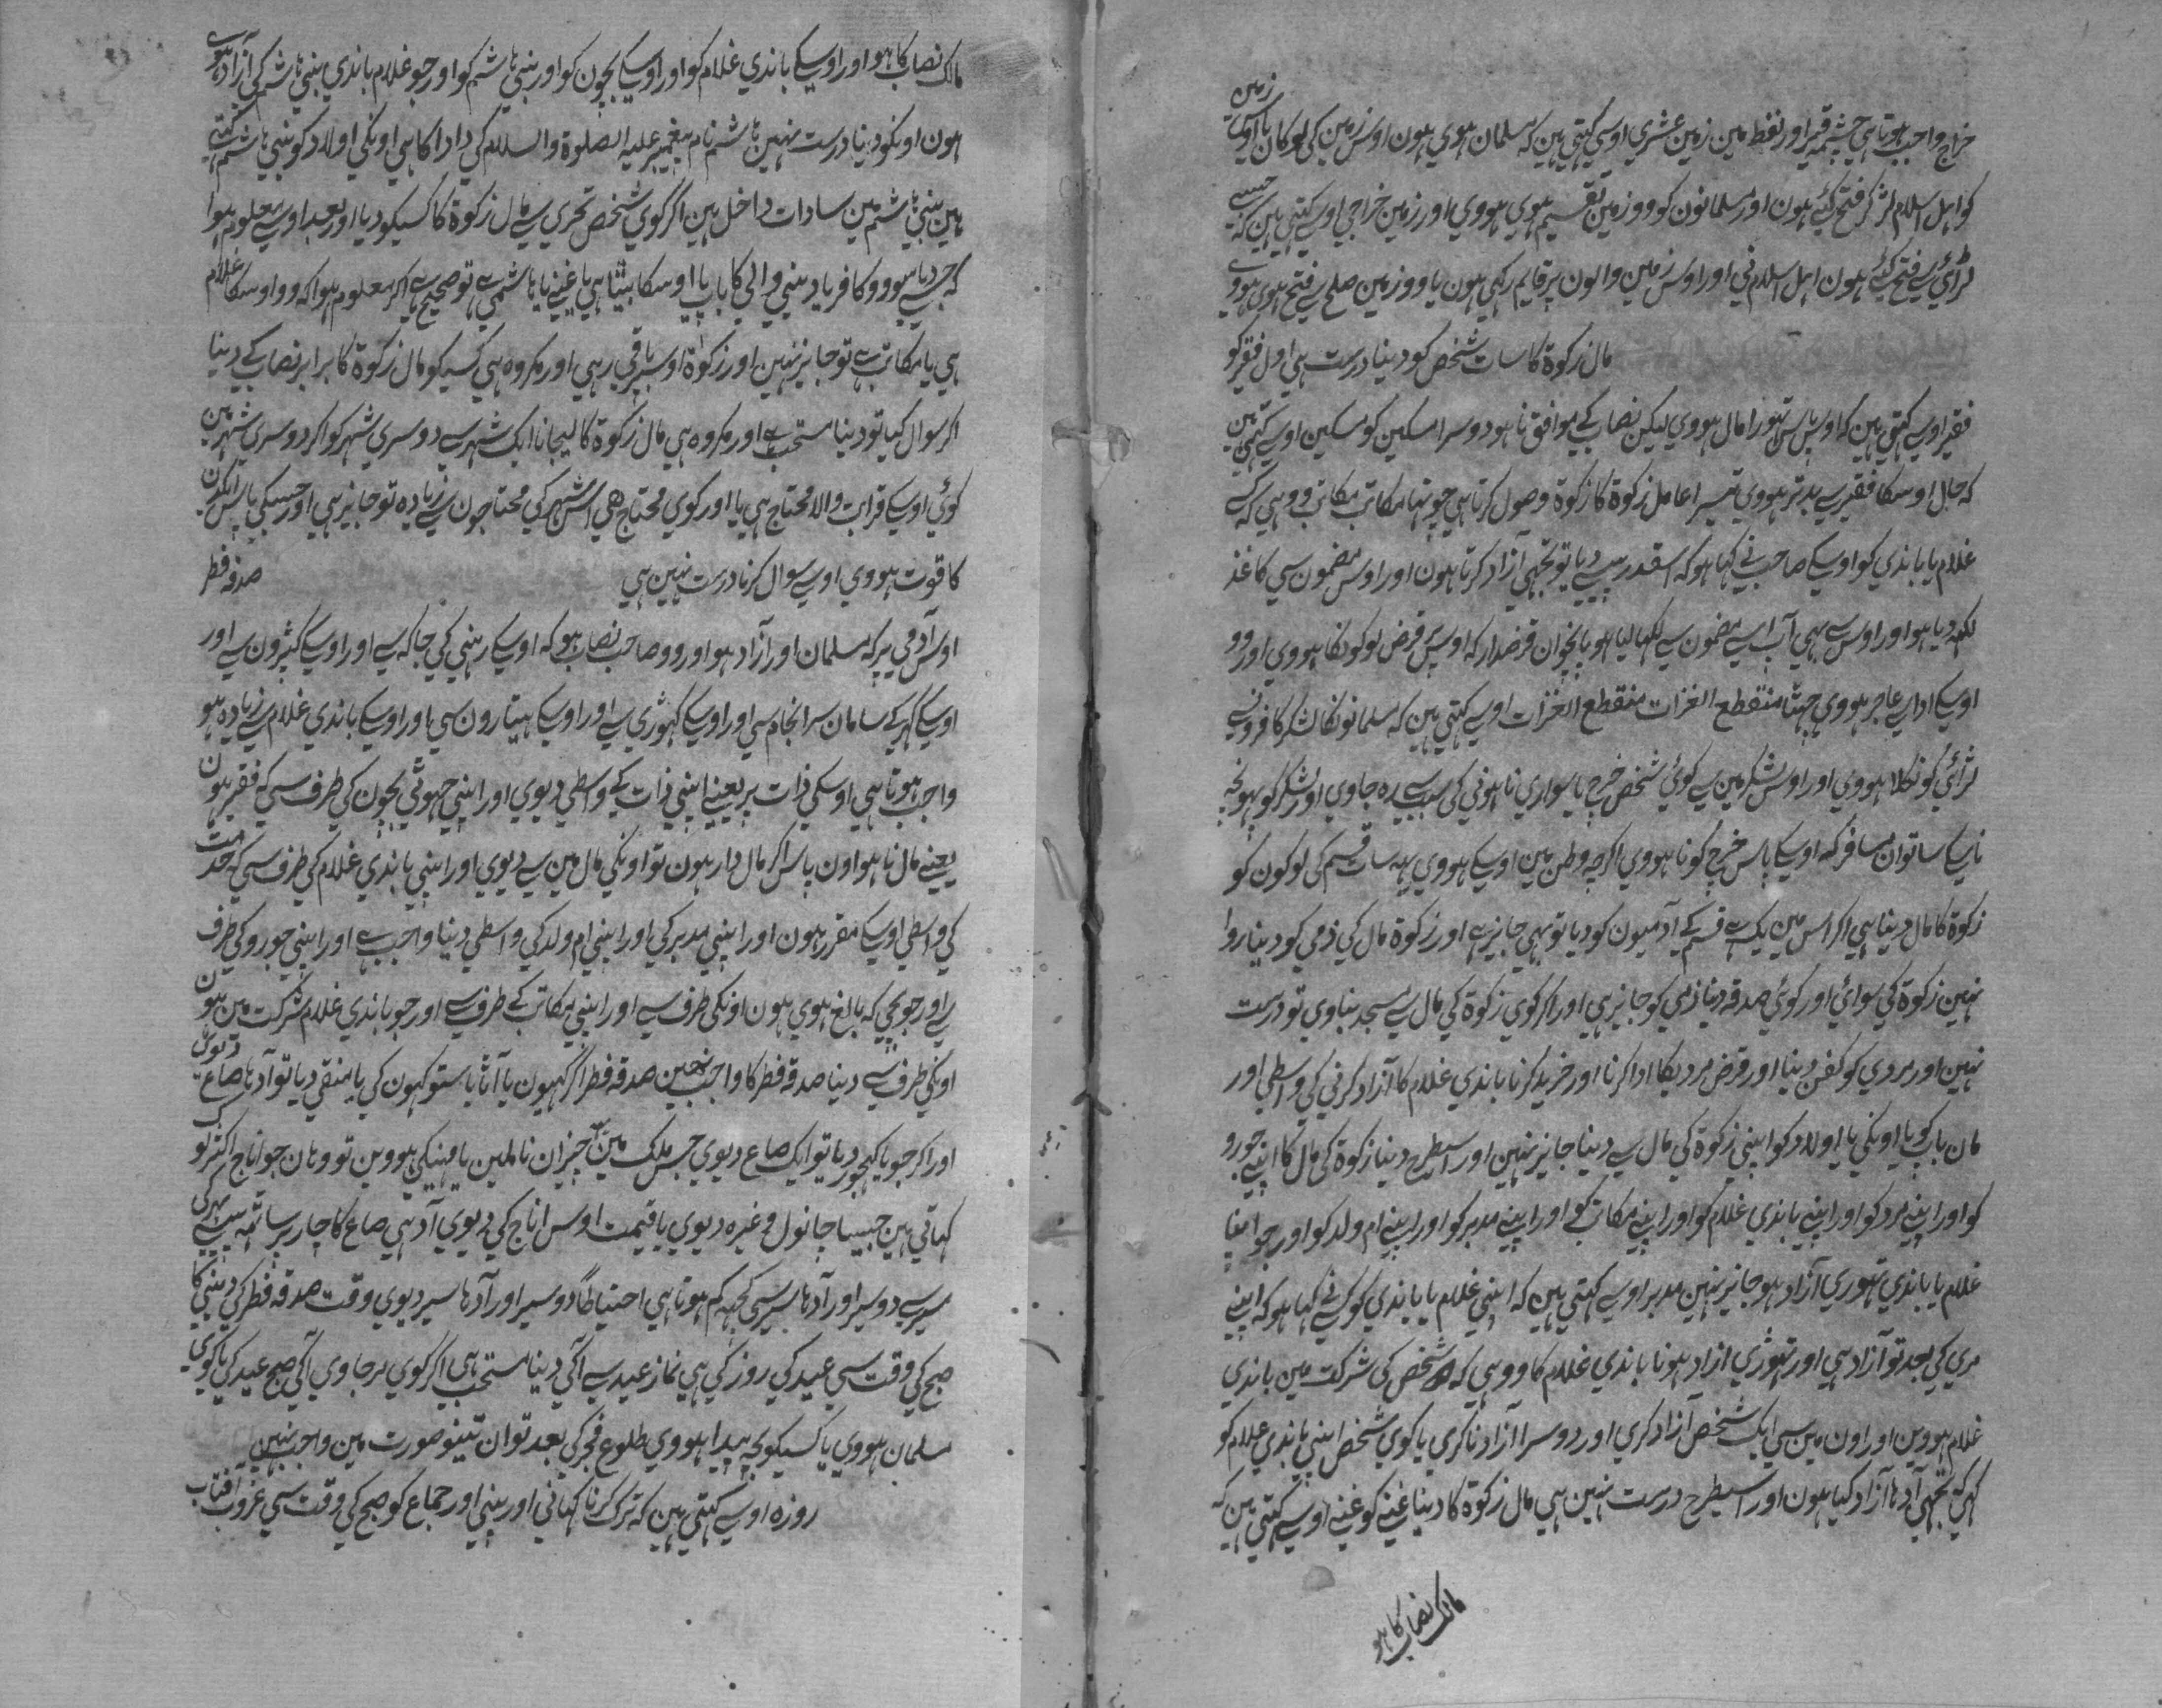 خراج واجب ہوتا ہی چشمہ قیر اور نفط مین زمین عشری اوسی کہتی ہین کہ مسلمان ہوی ہون اوس زمین کی لوکان یا اوس زمین
کو اہل اسلام لڑ کر فتح کئے ہون اور مسلمانون کو وو زمین تقسیم ہوی ہووی اور زمین خراجی اوسے کہتی ہین کہ جسے
لڑائی سے فتح کئے ہون اہل اسلام نی اور اوس زمین والون پر قایم رکہی ہون یا وو زمین صلح سے فتح ہوی ہووے
مال زکوة کا سات شخص کو دینا درست ہی اول فقیر کو
فقیر اوسے کہتی ہین کہ اوس پاس تہورا مال ہووی لیکن نصاب کے موافق نا ہو دوسرا مسکین کو مسکین اوسے کہتی ہین
کہ حال اوسکا فقیر سے بدتر ہووی تیسرا عامل زکوة کا زکوة وصول کرتا ہی چوتہا مکاتب مکاتب وو ہی کہ کسے
غلام یا باندی کو اوسکے صاحب نی کہا ہو کہ اسقدر پیسے دیا تو تجہی آزاد کرتا ہون اور اوس مضمون سی کاغذ
لکہہ دیا ہو اور اوس سے بہی آپ اسے مضمون سے لکہا لیا ہو پانچوان قرضدار کہ اوس پر قرض لوکونکا ہووی اور وو
اوسکے ادا سے عاجز ہووی چہٹا منقطع الغزات منقطع الغزات اوسے کہتی ہین کہ مسلمانونکا لشکر کافرونسے
لڑائی کو نکلا ہووی اور اوس لشکر مین سے کوئی شخص خرچ یا سواری نا ہونی کی سبب سے رہ جاوی اور لشکر کو پہونچ
نا سکے ساتوان مسافر کہ اوسکے پاس خرچ کو نا ہووی اکرچہ وطن مین اوسکے ہووی یہہ سات قسم کی لوکون کو
زکوة کا مال دینا ہی اکر اس مین یک قسم کے آدمیون کو دیا تو بہی جایز ہے اور زکوة مال کی ذمی کو دینا روا
نہین زکوة کی سوائی اور کوئی صدقہ دینا ذمی کو جایز ہی اور اکر کوی زکوة کی مال سے مسجد بناوی تو درست
نہین اور مردی کو کفن دینا اور قرض مردیکا ادا کرنا اور خرید کرنا باندی غلام کا آزاد کرنی کی واسطی اور
مان باپ کو یا اونکی یا اولاد کو اپنی زکوة کی مال سے دینا جایز نہین اور اسیطرح دینا زکوة کی مال کا اپنے جورو
کو اور اپنے مرد کو اور اپنے باندی غلام کو اور اپنے مکاتب کو اور اپنے مدبر کو اور اپنے ام ولد کو اور جو اپنا
غلام یا باندی تہوری آزاد ہو جایز نہین مدبر اوسے کہتی ہین کہ اپنی غلام یا باندی کو کسے نے کہا ہو کہ اپنے
مری کی بعد تو آزاد ہی اور تہوڑی ازاد ہونا باندی غلام کا وو ہی کہ دو شخص کی شرکت مین باندی
غلام ہووین اور اون مین سی ایک شخص آزاد کری اور دوسرا آزاد نا کری یا کوی شخص اپنی باندی غلام کو
کہی کہ تجہی آدہا آزاد کیا ہون اور اسیطرح درست نہین ہی مال زکوة کا دینا غنی کو غنی اوسے کہتی ہین کہ
مالک نصاب کا ہو
مالک نصاب کا ہو اور اوسکے باندی غلام کو اور اوسکے بچون کو اور بنی ہاشم کو اور جو غلام باندی بنی ہاشم کی آزاد ہوے
ہون اونکو دینا درست نہین ہاشم نام پیغمبر علیہ الصلوة والسلام کی دادا کا ہی اونکی اولاد کو بنی ہاشم کہتے
ہین بنی ہاشم مین سادات داخل ہین اگر کوی شخص تحری سے مال زکوة کا کسیکو دیا اور بعد اوسے معلوم ہوا
کہ جسے دیا سو وو کافر یا دینی والی کا باپ یا اوسکا بیٹا ہی یا غنی یا ہاشمی ہے تو صحیح ہے اکر معلوم ہوا کہ وو اوسکا غلام
ہی یا مکاتب ہے تو جایز نہین اور زکوٰة اوس پر باقی رہی اور مکروہ ہی کسیکو مال زکوة کا برابر نصاب کے دینا
اکر سوال کیا تو دینا مستحب ہے اور مکروہ ہی مال زکوة کا لیجانا ایک شہر سے دوسری شہر کو اکر دوسری شہر مین
کوئی اوسکے قرابت والا محتاج ہی یا اور کوی محتاج ہی اس شہر کی محتاجون سے زیادہ تو جایز ہی اور جسکی پاس ایکدن
کا قوت ہووی اوسے سوال کرنا درست نہین ہی صدقہ فطر
اوس آدمی پر کہ مسلمان اور آزاد ہو اور وو صاحب نصاب ہو کہ اوسکے رہنی کی جاکہ سے اور اوسکے کپڑون سے اور
اوسکے گہر کے سامان سرانجام سی اور اوسکے کہوڑی سے اور اوسکے ہتیارون سی یا اور اوسکے باندی غلام سے زیادہ ہو
واجب ہوتا ہی اوسکی ذات پر یعنے اپنی ذات کے واسطی دیوی اور اپنی چہوٹی بچون کی طرف سی کہ فقیر ہون
یعنے مال نا ہو اون پاس اکر مال دار ہون تو اونکی مال مین سے دیوی اور اپنی باندی غلام کی طرف سی کہ خدمت
کی واسطی اوسکے مقرر ہون اور اپنی مدبر کی اور اپنی ام ولد کی واسطی دینا واجب ہے اور اپنی جورو کی طرف
سے اور جو بچی کہ بالغ ہوی ہون اونکی طرف سے اور اپنی مکاتب کے طرف سے اور جو باندی غلام شرکت مین ہون
اونکی طرف سے دینا صدقہ فطر کا واجب نہین صدقہ فطر اگر گہیون یا آٹا یا ستو کہون کی یا منقی دیا تو آدہا صاع دیوی
اور اکر جو یا کہجور دیا تو ایک صاع دیوی جس ملک مین یہ چیزان نا ملین یا مہنکی ہووین تو وہان جو اناج اکثر لوک
کہاتی ہین جیسا چانول وغیرہ دیوی یا قیمت اوس اناج کی دیوی آدہی صاع کا چار سیر
سیر سے دو سیر اور آدہا سیر سی کچہہ کم ہوتا ہی احتیاطا دو سیر اور آدہا سیر دیوی وقت صدقہ فطر کی دینی کا
صبح کی وقت سی عید کی روز کی ہی نماز عید سے آکی دینا مستحب ہی اگر کوی مر جاوی آکی صبح عید کی یا کوی
مسلمان ہووی یا کسیکو بچہ پیدا ہووی طلوع فجر کی بعد تو ان تینو صورت مین واجب نہین
روزہ اوسے کہتی ہین کہ ترک کرنا کہانی اور پینی اور جماع کو صبح کی وقت سی غروب آفتاب